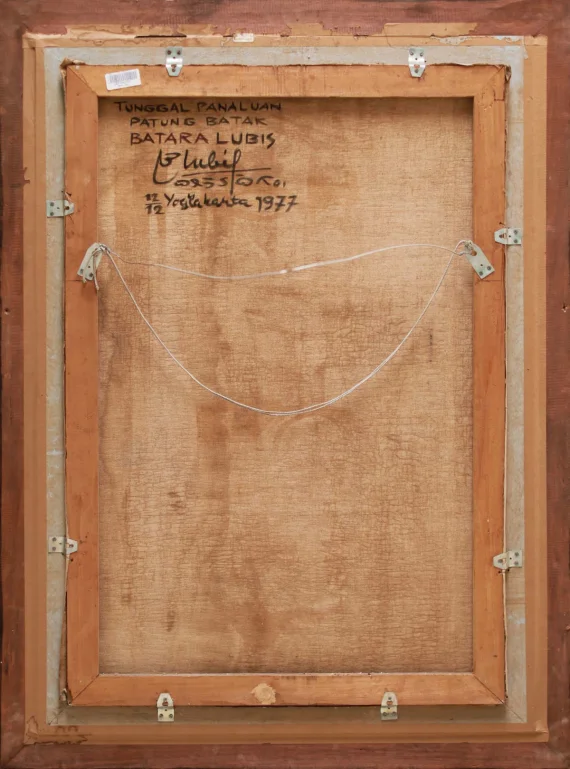 TUNGGAL PANALUAN
PATUNG BATAK
BATARA LUBIS
Lubis
12/12 Yogyakarta 1977